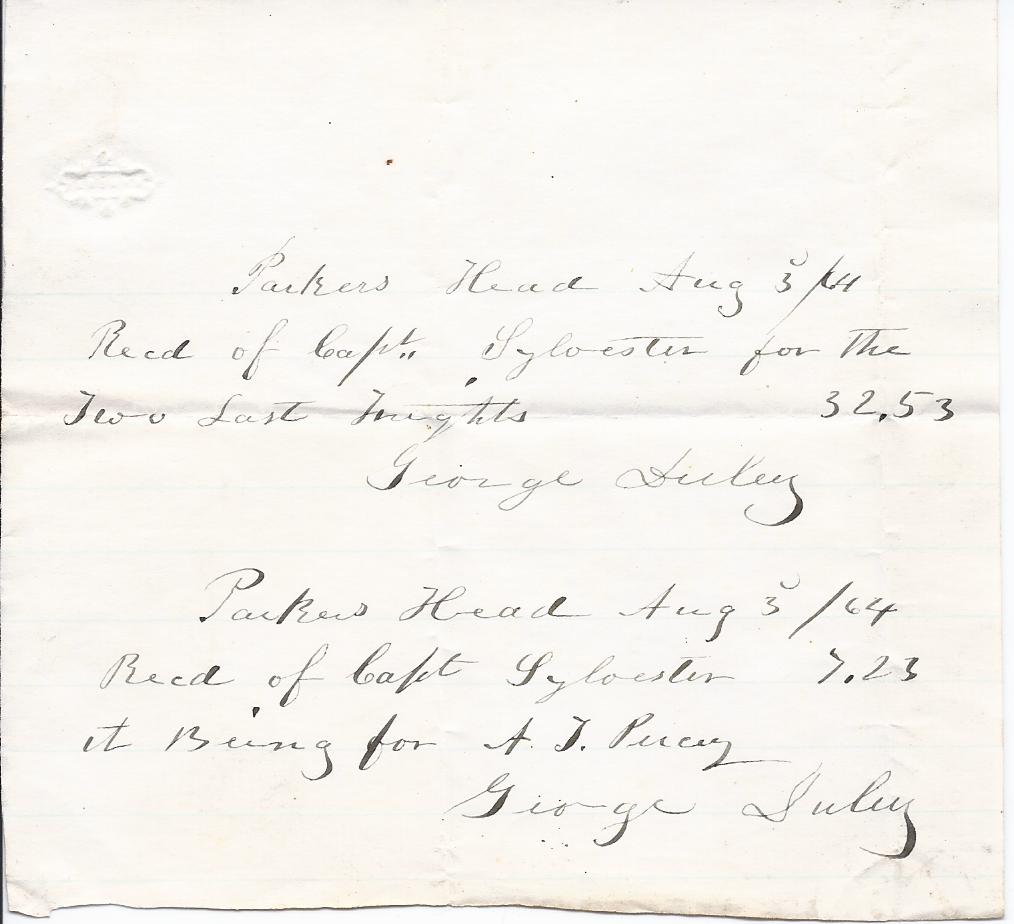 Parkers Head Aug 5 /64
Recd of Capt. Sylvester for the
Two Last Frieghts 32.53
George Duley
Parkers Head Aug 5 /64
Recd of Capt Sylvester 7.23
it Being for A. T. Percy
George Duley